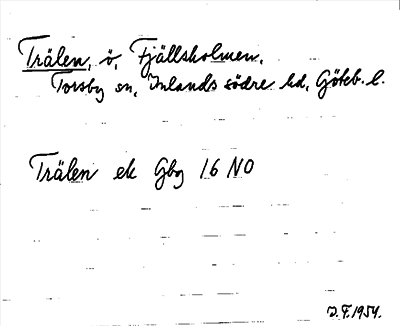 Trälen, ö, Fjällsholmen,
Torsby sn, Inlands södre hd, Göteb. l.
Trälen ek Gbg 16 NO
J.F. 1954.